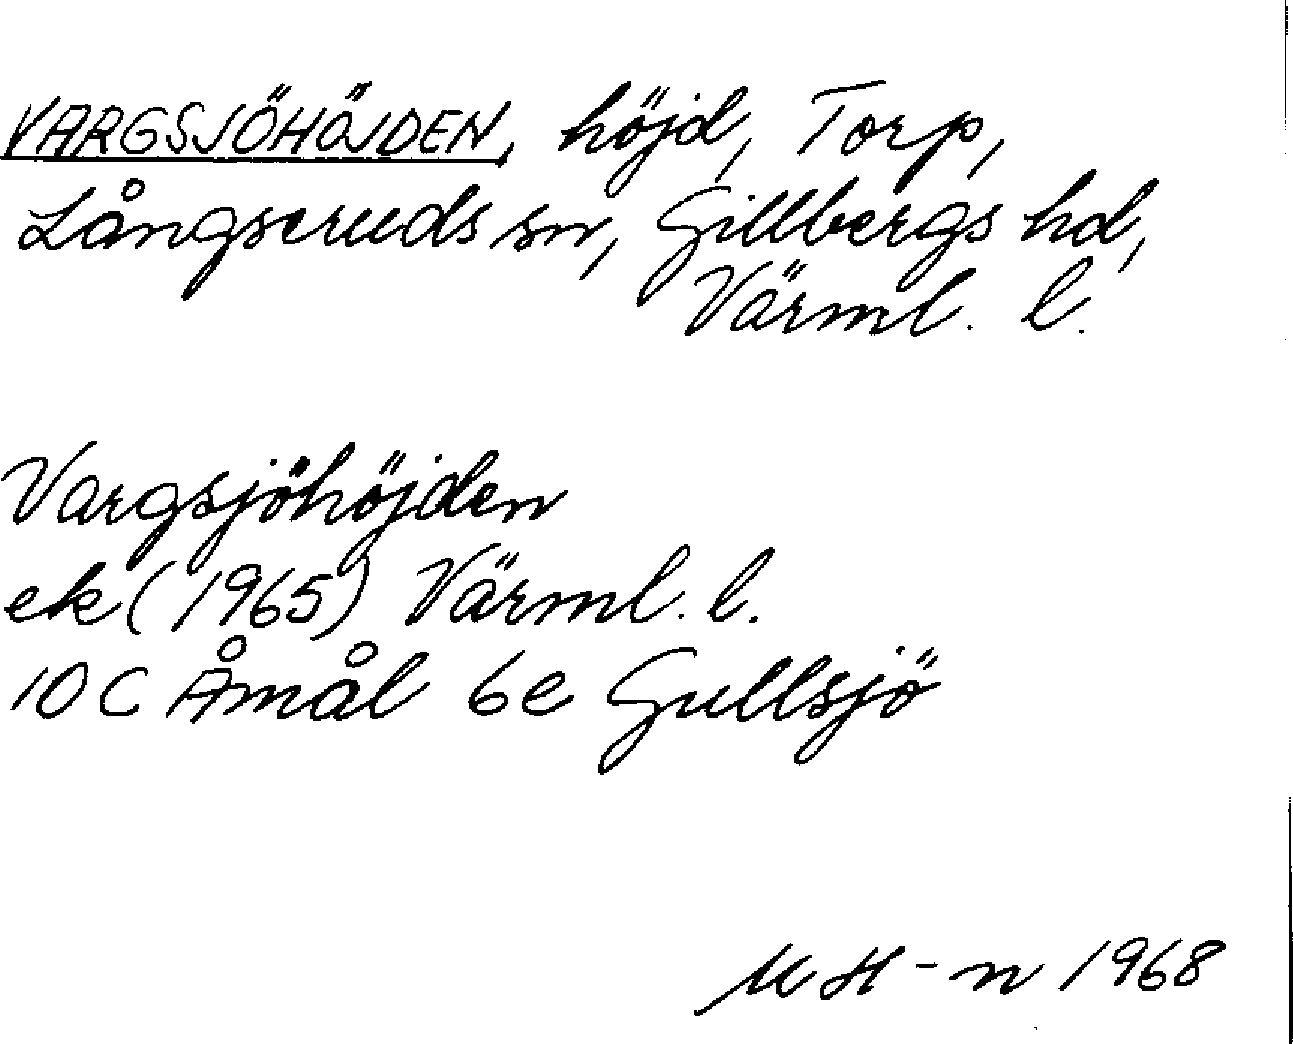 VARGSJÖHÖJDEN, höjd, Torp,
Långseruds sn, Gillbergs hd,
Värml. l.
Vargsjöhöjden
ek (1965) Värml. l.
10 C Åmål 6e Gullsjö
M H-n 1968